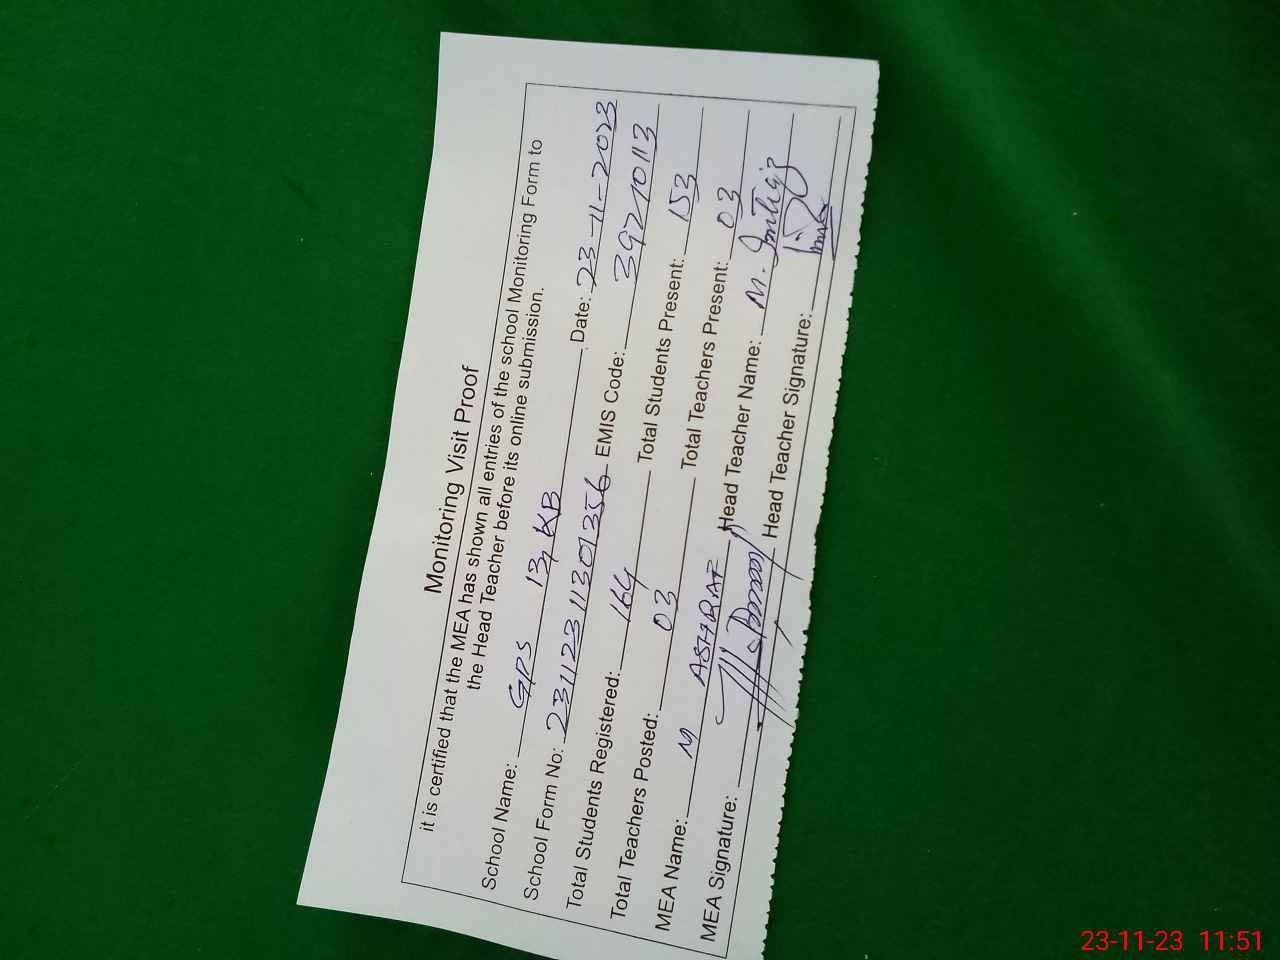 Monitoring Visit Proof
it is certified that the MEA has shown all entries of the school Monitoring Form to
the Head Teacher before its online submission.
School Name: GPS 13, KB Date: 23-11-2023
School Form No: 23112311301356 EMIS Code: 39210113
Total Students Registered: 164 Total Students Present: 153
Total Teachers Posted: 03 Total Teachers Present: 03
MEA Name: M ASHRAF Head Teacher Name: M. Imtiaz
MEA Signature: Head Teacher Signature:
23-11-23 11:51